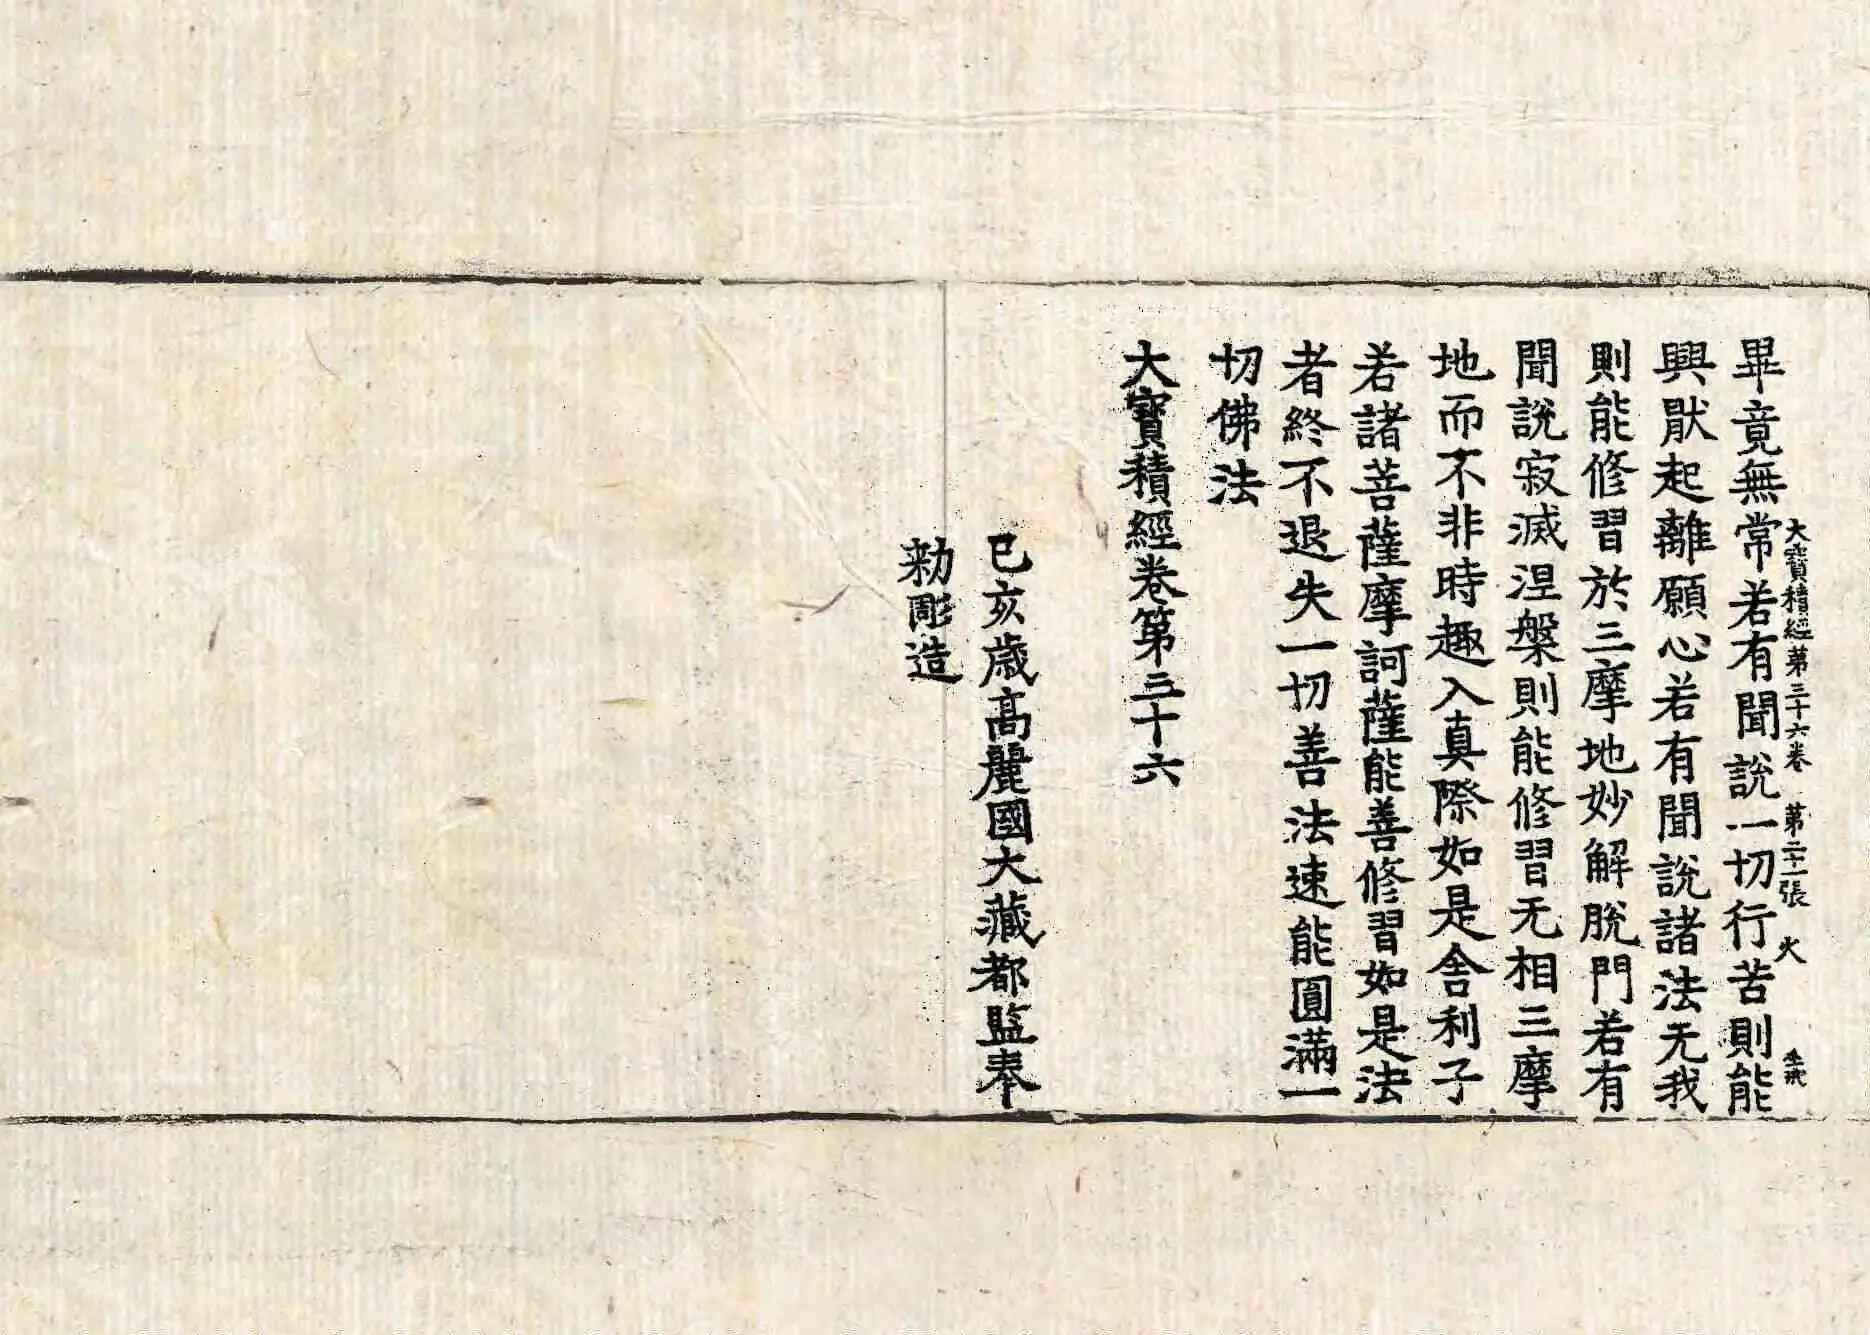 大寶積經第三十六卷 第二十一張 火
畢竟無常若有聞說一切行苦則能
興猒起離願心若有聞說諸法无我
則能修習於三摩地妙解脫門若有
聞說寂滅涅槃則能修習无相三摩
地而不非時趣入真際如是舍利子
若諸菩薩摩訶薩能善修習如是法
者終不退失一切善法速能圓滿一
切佛法
大寶積經卷第三十六
己亥歲高麗國大藏都監奉
勑彫造